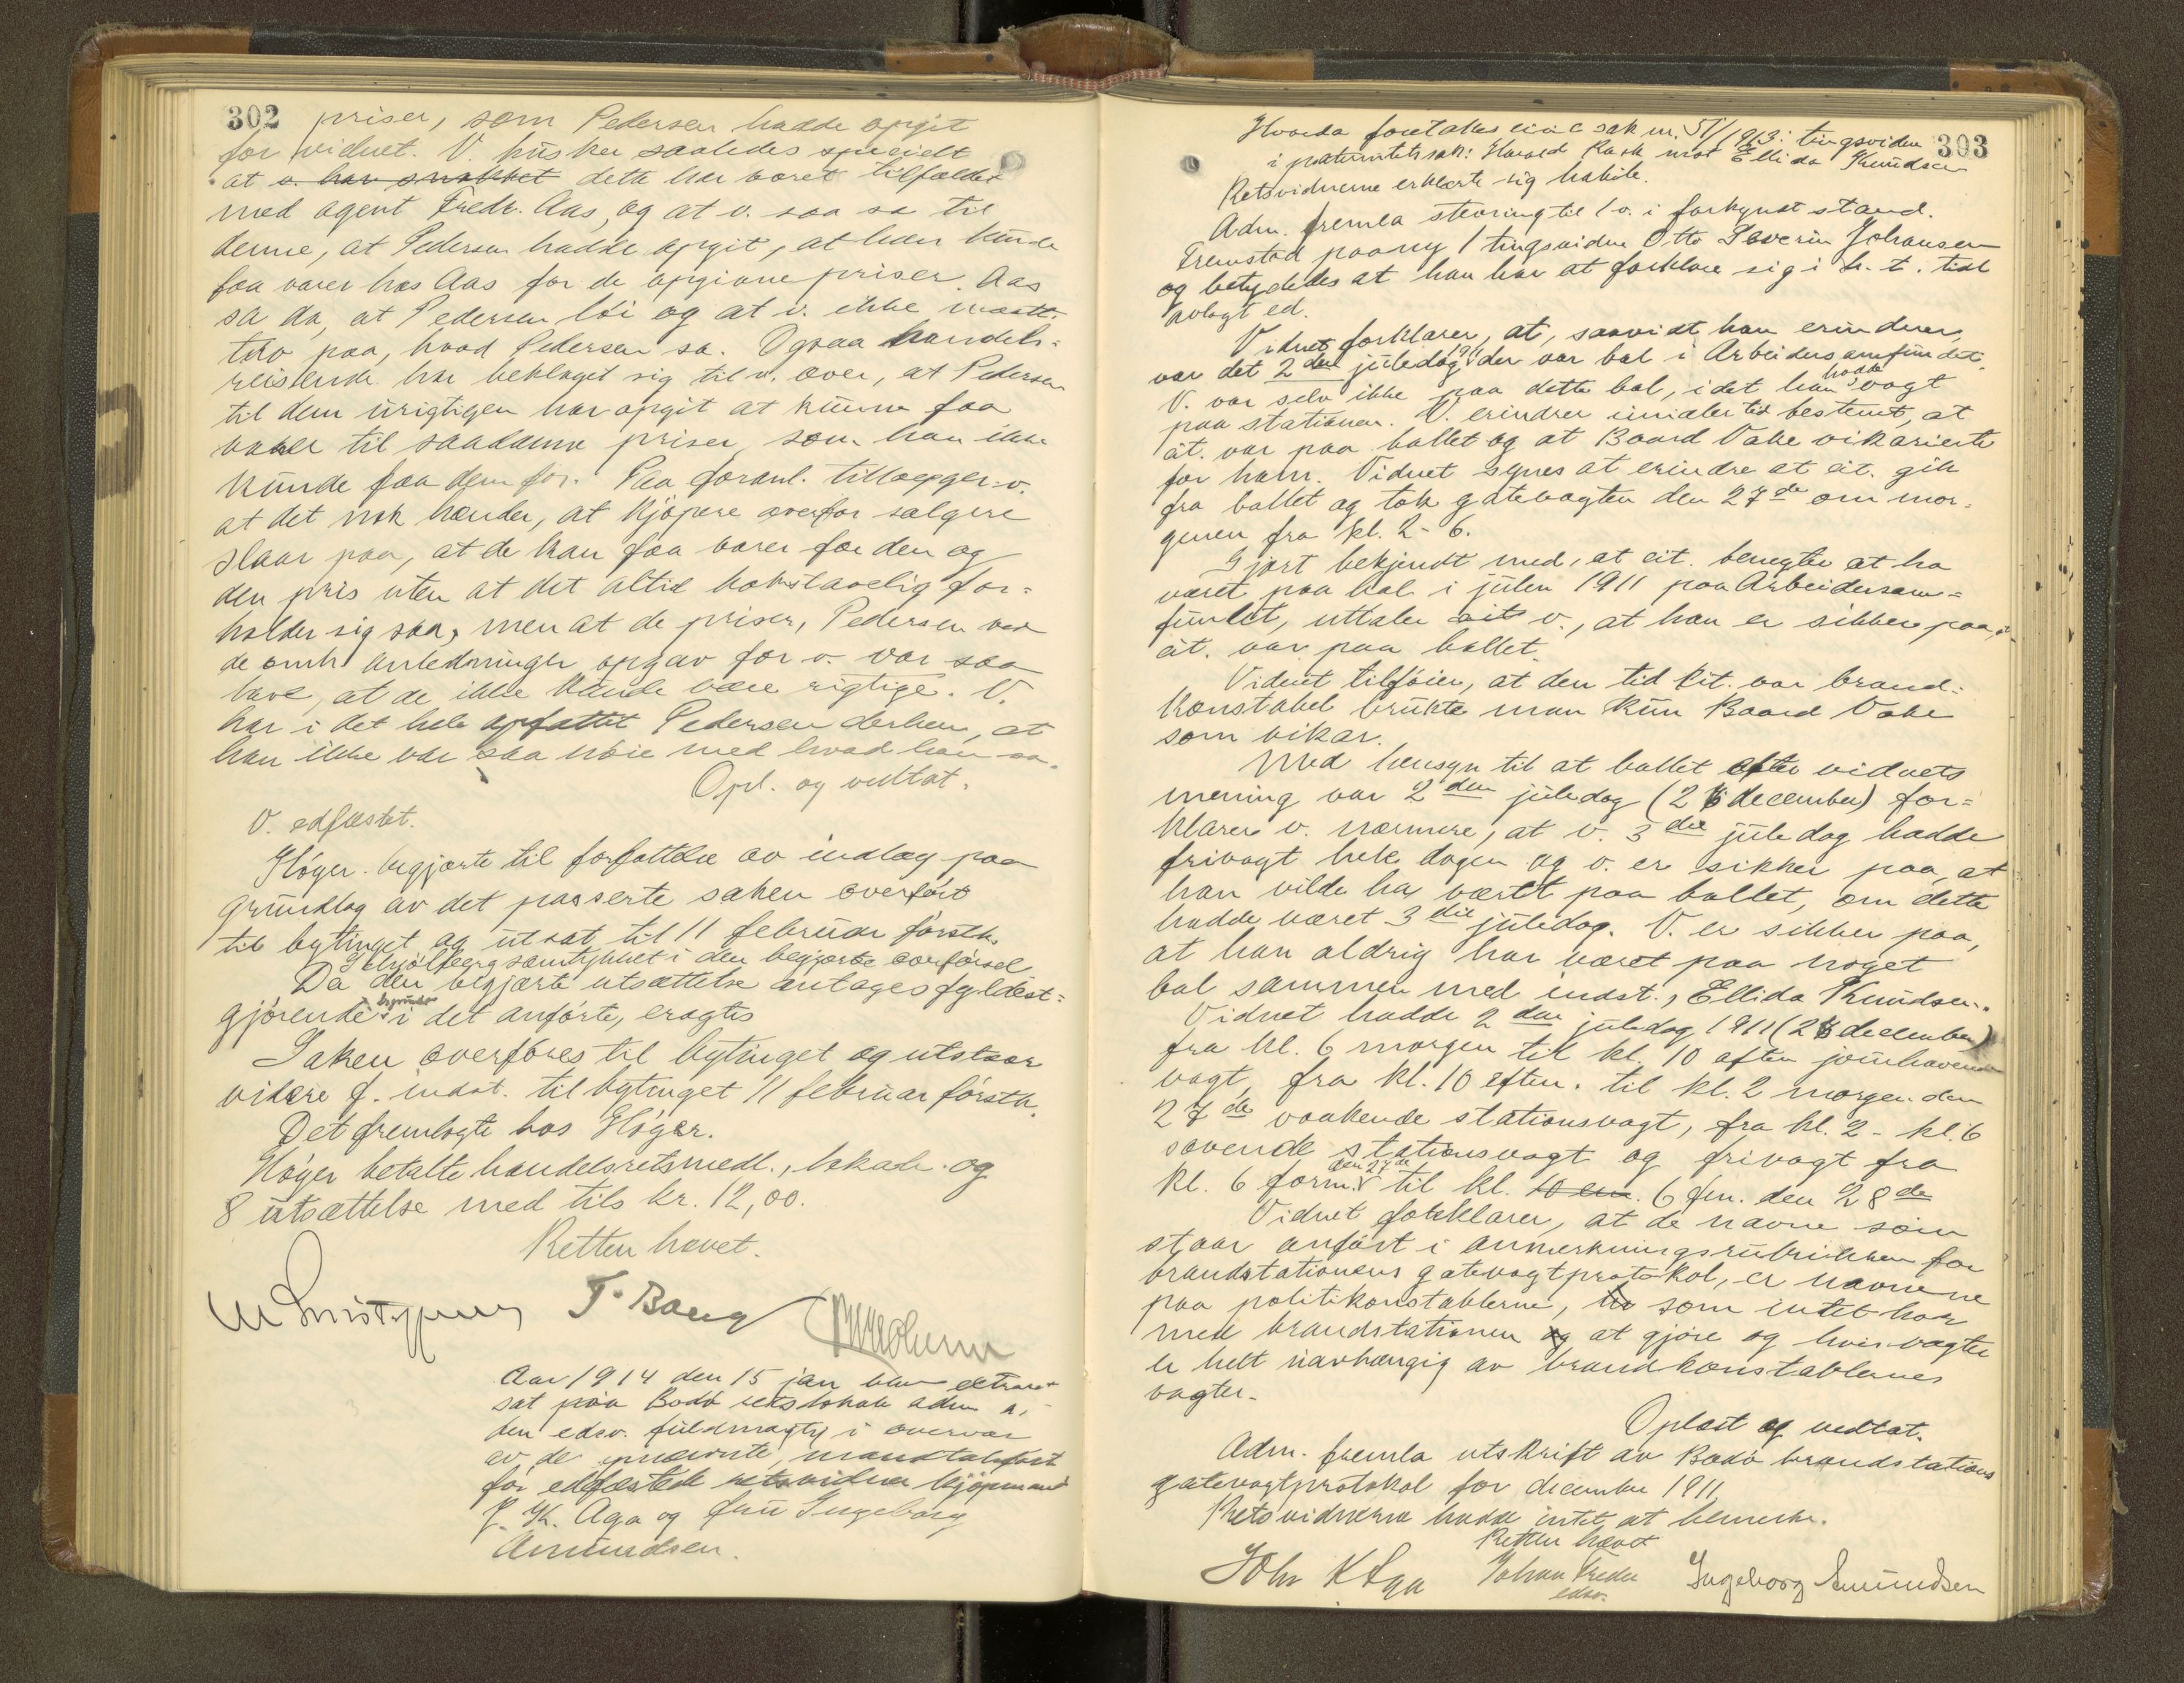 302 priser, som Pedersen hadde opgit
for vidnet. V. husker saaledes specielt
at v. har snakket dette har været tilfældet
med agent Fredr. Aas, og at v. saa sa til
denne, at Pedersen hadde opgit, at han kunde
faa varer hos Aas for de opgivne priser. Aas
sa da, at Pedersen löi og at v. ikke maatte
tro paa, hvad Pedersen sa. Ogsaa handels-
reisende har beklaget sig til v. over, at Pedersen
til dem urigtigen har opgit at kunne faa
varer til saadanne priser, som han ikke
kunde faa dem for. Paa foranl. tillægger v.
at det nok hænder, at kjöpere overfor sælgere
slaar paa, at de kan faa varer for den og
den pris uten at det altid bokstavelig for-
holder sig saa, men at de priser, Pedersen ved
de omh. anledninger opgav for v. var saa
lave, at de ikke kunde være rigtige. V.
har i det hele opfattet Pedersen derhen, at
han ikke var saa nöie med hvad han sa.
Opl. og vedtat.
V. edfæstet.
Höyer begjærte til forfattelse av indlæg paa
grundlag av det passerte saken overfört
til bytinget og utsat til 11 februar förstk.
Schjölberg samtykket i den begjærte overförsel
Da den begjærte utsættelse antages fyldest-
gjörende begrundet i det anförte, eragtes
Saken overföres til bytinget og utstaar
videre f. indst. til bytinget 11 februar förstk.
Det fremlagte hos Höyer.
Höyer betalte handelsretsmedl., lokale og
8 utsættelse med tils kr. 12,00.
Retten hævet.
T. Bang
Aar 1914 den 15 jan. blev extraret
sat paa Bodö retslokale adm. av
den edsv. fuldmægtig i overvær
av de opnævnte, mandtalsfört
for edfæstede retsvidner kjöpmand
J. K. Aga og fru Ingeborg
Amundsen.
303
Hvorda foretakes civ c sak nr. 51/1913: tingsvidne
i paternitetssak: Harald Rask mot Ellida Knudsen
Retsvidnerne erklærte sig habile.
Adm. fremla stevning til 1 v. i forkyndt stand.
Fremstod paany 1 tingsvidne Otto Severin Johansen
og betydedes at han har at forklare sig i h. t. tidl
avlagt ed.
Vidnet forklarer, at, saavidt han erindrer,
var det 2den juledag 1911 der var bal i Arbeidersamfundet.
V. var selv ikke paa dette bal, idet han hadde vagt
paa stationen. V. erindrer imidlertid bestemt, at
cit. var paa ballet og at Baard Vake vikarierte
for ham. Vidnet synes at erindre at cit. gik
fra ballet og tok gatevagten den 27de om mor-
genen fra kl. 2-6.
Gjort bekjendt med, at cit. benegter at ha
været paa bal i julen 1911 paa Arbeidersam-
fundet, uttaler cit v., at han er sikker paa, at
cit. var paa ballet.
Vidnet tilföier, at den tid cit. var brand-
konstabel brukte man kun Baard Vake
som vikar.
Med hensyn til at ballet efter vidnets
mening var 2den juledag (26 december) for-
klarer v. nærmere, at v. 3die juledag hadde
frivagt hele dagen og v. er sikker paa, at
han vilde ha været paa ballet, om dette
hadde været 3die juledag. V. er sikker paa,
at han aldrig har været paa noget
bal sammen med indst., Ellida Knudsen.
Vidnet hadde 2den juledag 1911 (26 december)
fra kl. 6 morgen til kl. 10 aften jourhavende
vagt, fra kl. 10 eftm. til kl. 2 morgen den
27de vaakende stationsvagt, fra kl. 2 - kl. 6
sovende stationsvagt og frivagt fra
kl. 6 form. den 27de til kl. 10 em. 6 fm. den 28de
Vidnet forklarer, at de navne som
staar anfört i anmerkningsrubrikken for
brandstationens gatevagtprotokol, er navnene
paa politikonstablerne, som intet har
med brandstationen og at gjöre og hvis vagter
er helt uavhængig av brandkonstablernes
vagter.
Oplæst og vedtat.
Adm. fremla utskrift av Bodö brandstations
gatevagtprotokol for december 1911.
Retsvidnerne hadde intet at bemerke.
Retten hævet
John K Aga Johan Freder Ingeborg Amundsen
edsv.